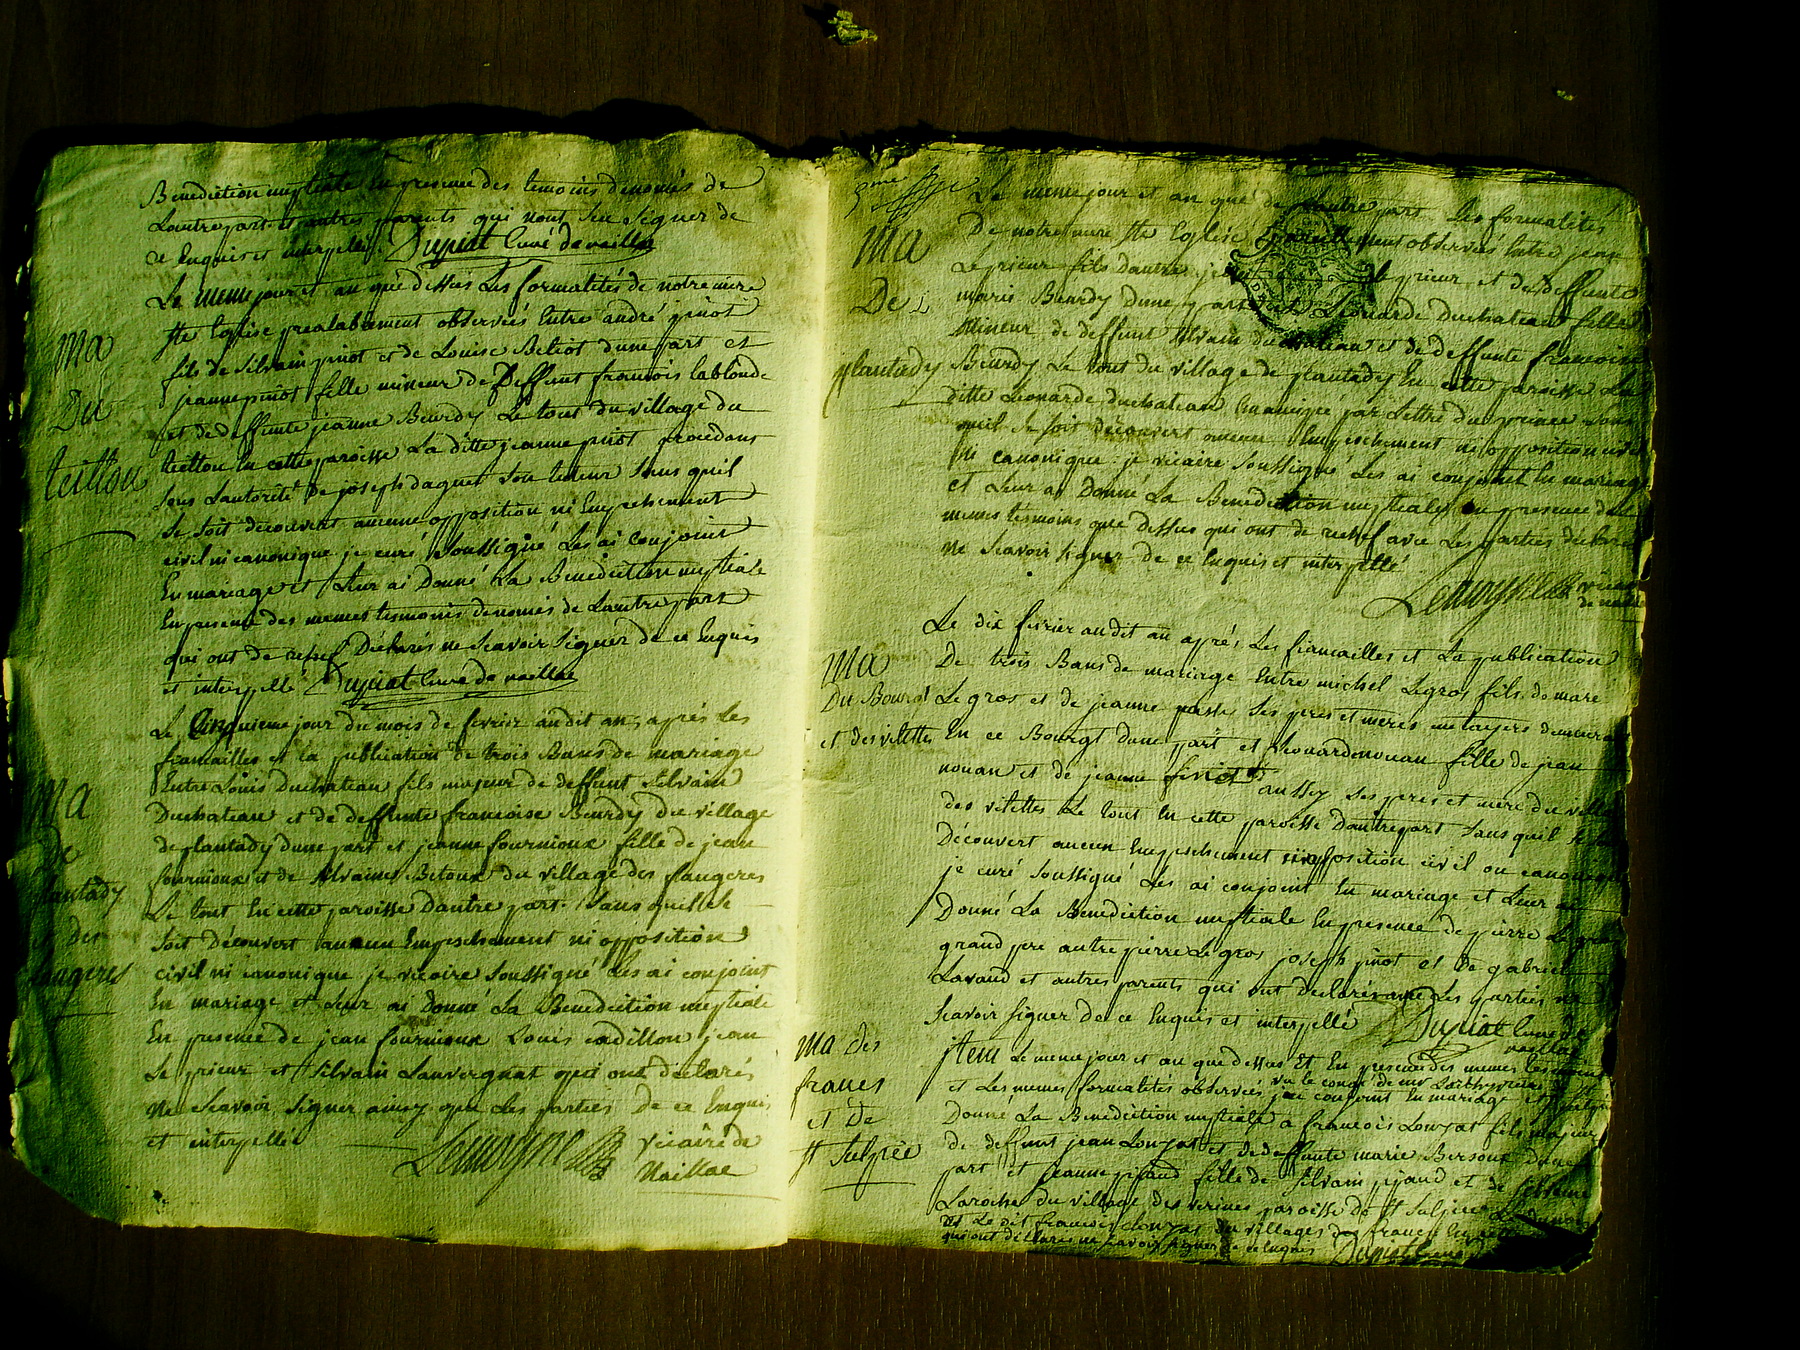 Benediction nuptiale en presence des temoins denomés de
Lautre part et autres parents qui n'ont sçu signer de
ce Enquis et interpellés Dupiat Curé de naillac
Le meme jour et an que dessus Les formalités de notre mere
Ste Eglise prealablement observées Entre andré pinot
fils de Silvain pinot et de Louise Betiot dune part et
jeanne pinot fille mineur de Deffunt francois lablonde
et de deffunte jeanne Beurdy Le tout du village du
teillou En cette paroisse La ditte jeanne pinot procedans
sous Lautorité de joseph daguet son tuteur sans quil
se soit decouvert aucune opposition ni Empeschement
civil ni canonique je curé soussigné Les ai conjoint
En mariage et Leur ai Donné La Benediction nuptiale
En presence des memes temoins denomés de Lautre part
qui ont de rechef Déclarés ne Scavoir Signer de ce Enquis
et interpellé Dupiat Curé de naillac
Ma
Du
teillou
Le Cinquieme jour du mois de fevrier audit an, aprés Les
fiancailles et la publication de trois Bans de mariage
Entre Louis Duchateau fils majeur de deffunt Silvain
Duchateau et de deffunte francoise Beurdy du village
de plantady dune part et jeanne fournioux fille de jean
fournioux et de Silvaine Betoux du village des faugeres
Le tout En cette paroisse Dautre part. Sans quil se
soit Découvert aucun Empeschement ni opposition
civil ni canonique je vicaire Soussigné Les ai conjoint
En mariage et Leur ai Donné La Benediction nuptiale
En presence de jean fournioux Louis cadillon jean
Le prieur et Silvain Lauvergnat qui ont declarés
Ne Scavoir Signer ainsy que Les parties De ce Enquis
et interpellée Lemoyne vicaire de
Naillac
Ma
De
plantady
et des
faugeres
Le meme jour et an que de Lautre part Les formalités
De notre mere Ste Eglise observées Entre jean
Le prieur fils Dautre prieur et de deffunte
marie Beurdy Dune part et Léonarde Duchateau fille
Mineur de deffunt Silvain duchateau et de deffunte francoise
Beurdy Le tout du village de plantady En cette paroisse La
ditte Léonarde duchateau Emancipée par Lettre du prince sans
quil se soit Découvert aucun Empeschement ni opposition civil
ni canonique je vicaire Soussigné Les ai conjoint En mariage
et Leur ai Donné La Benediction nuptiale en presence des
memes temoins que dessus qui ont de rechef avec Les parties declaré
Ne Scavoir signer de ce Enquis et interpellé
Lemoyne vicaire
de naillac
Ma
De
plantady
Le dix fevrier audit an aprés Les fiancailles et La publication
De trois Bans de mariage Entre michel Legros fils de marc
Le gros et de jeanne paste Ses peres et meres metayers demeurant
En ce Bourgt dune part et Leonarde nouan fille de jean
nouan et de jeanne aussy Ses peres et mere du village
des vilettes Le tout En cette paroisse Dautre part Sans quil se soit
Découvert aucun Empeschement ni opposition civil ou canonique
je curé Soussigné Les ai conjoint En mariage et Leur ai
Donné La Benediction nuptiale En presence de pierre Le gros
grand pere autre pierre Legros joseph pinot et De gabriel
Lavaud et autres parents qui ont declarés avec Les parties ne
Scavoir signer de ce Enquis et interpellé Dupiat Curé de
naillac
Ma
Du Bourgt
et des vilettes
jtem Le meme jour et an que dessus Et En presence des memes temoins
et Les memes formalités observées vu le congé de mr
jai conjoint En mariage et
Donné La Benediction nuptiale a francois Louzat fils majeur
de deffunt jean Louzat et de deffunte marie Bersoux Dune
part et jeanne pijaud fille de Silvain pijaud et de Silvaine
Laroche du village des verines paroisse de St Sulpice
et Le dit francois Louzat du village des francs En cette
qui ont déclarés ne scavoir signer de ce Enquis Dupiat Curé
Ma des
francs
et De
St Sulpice